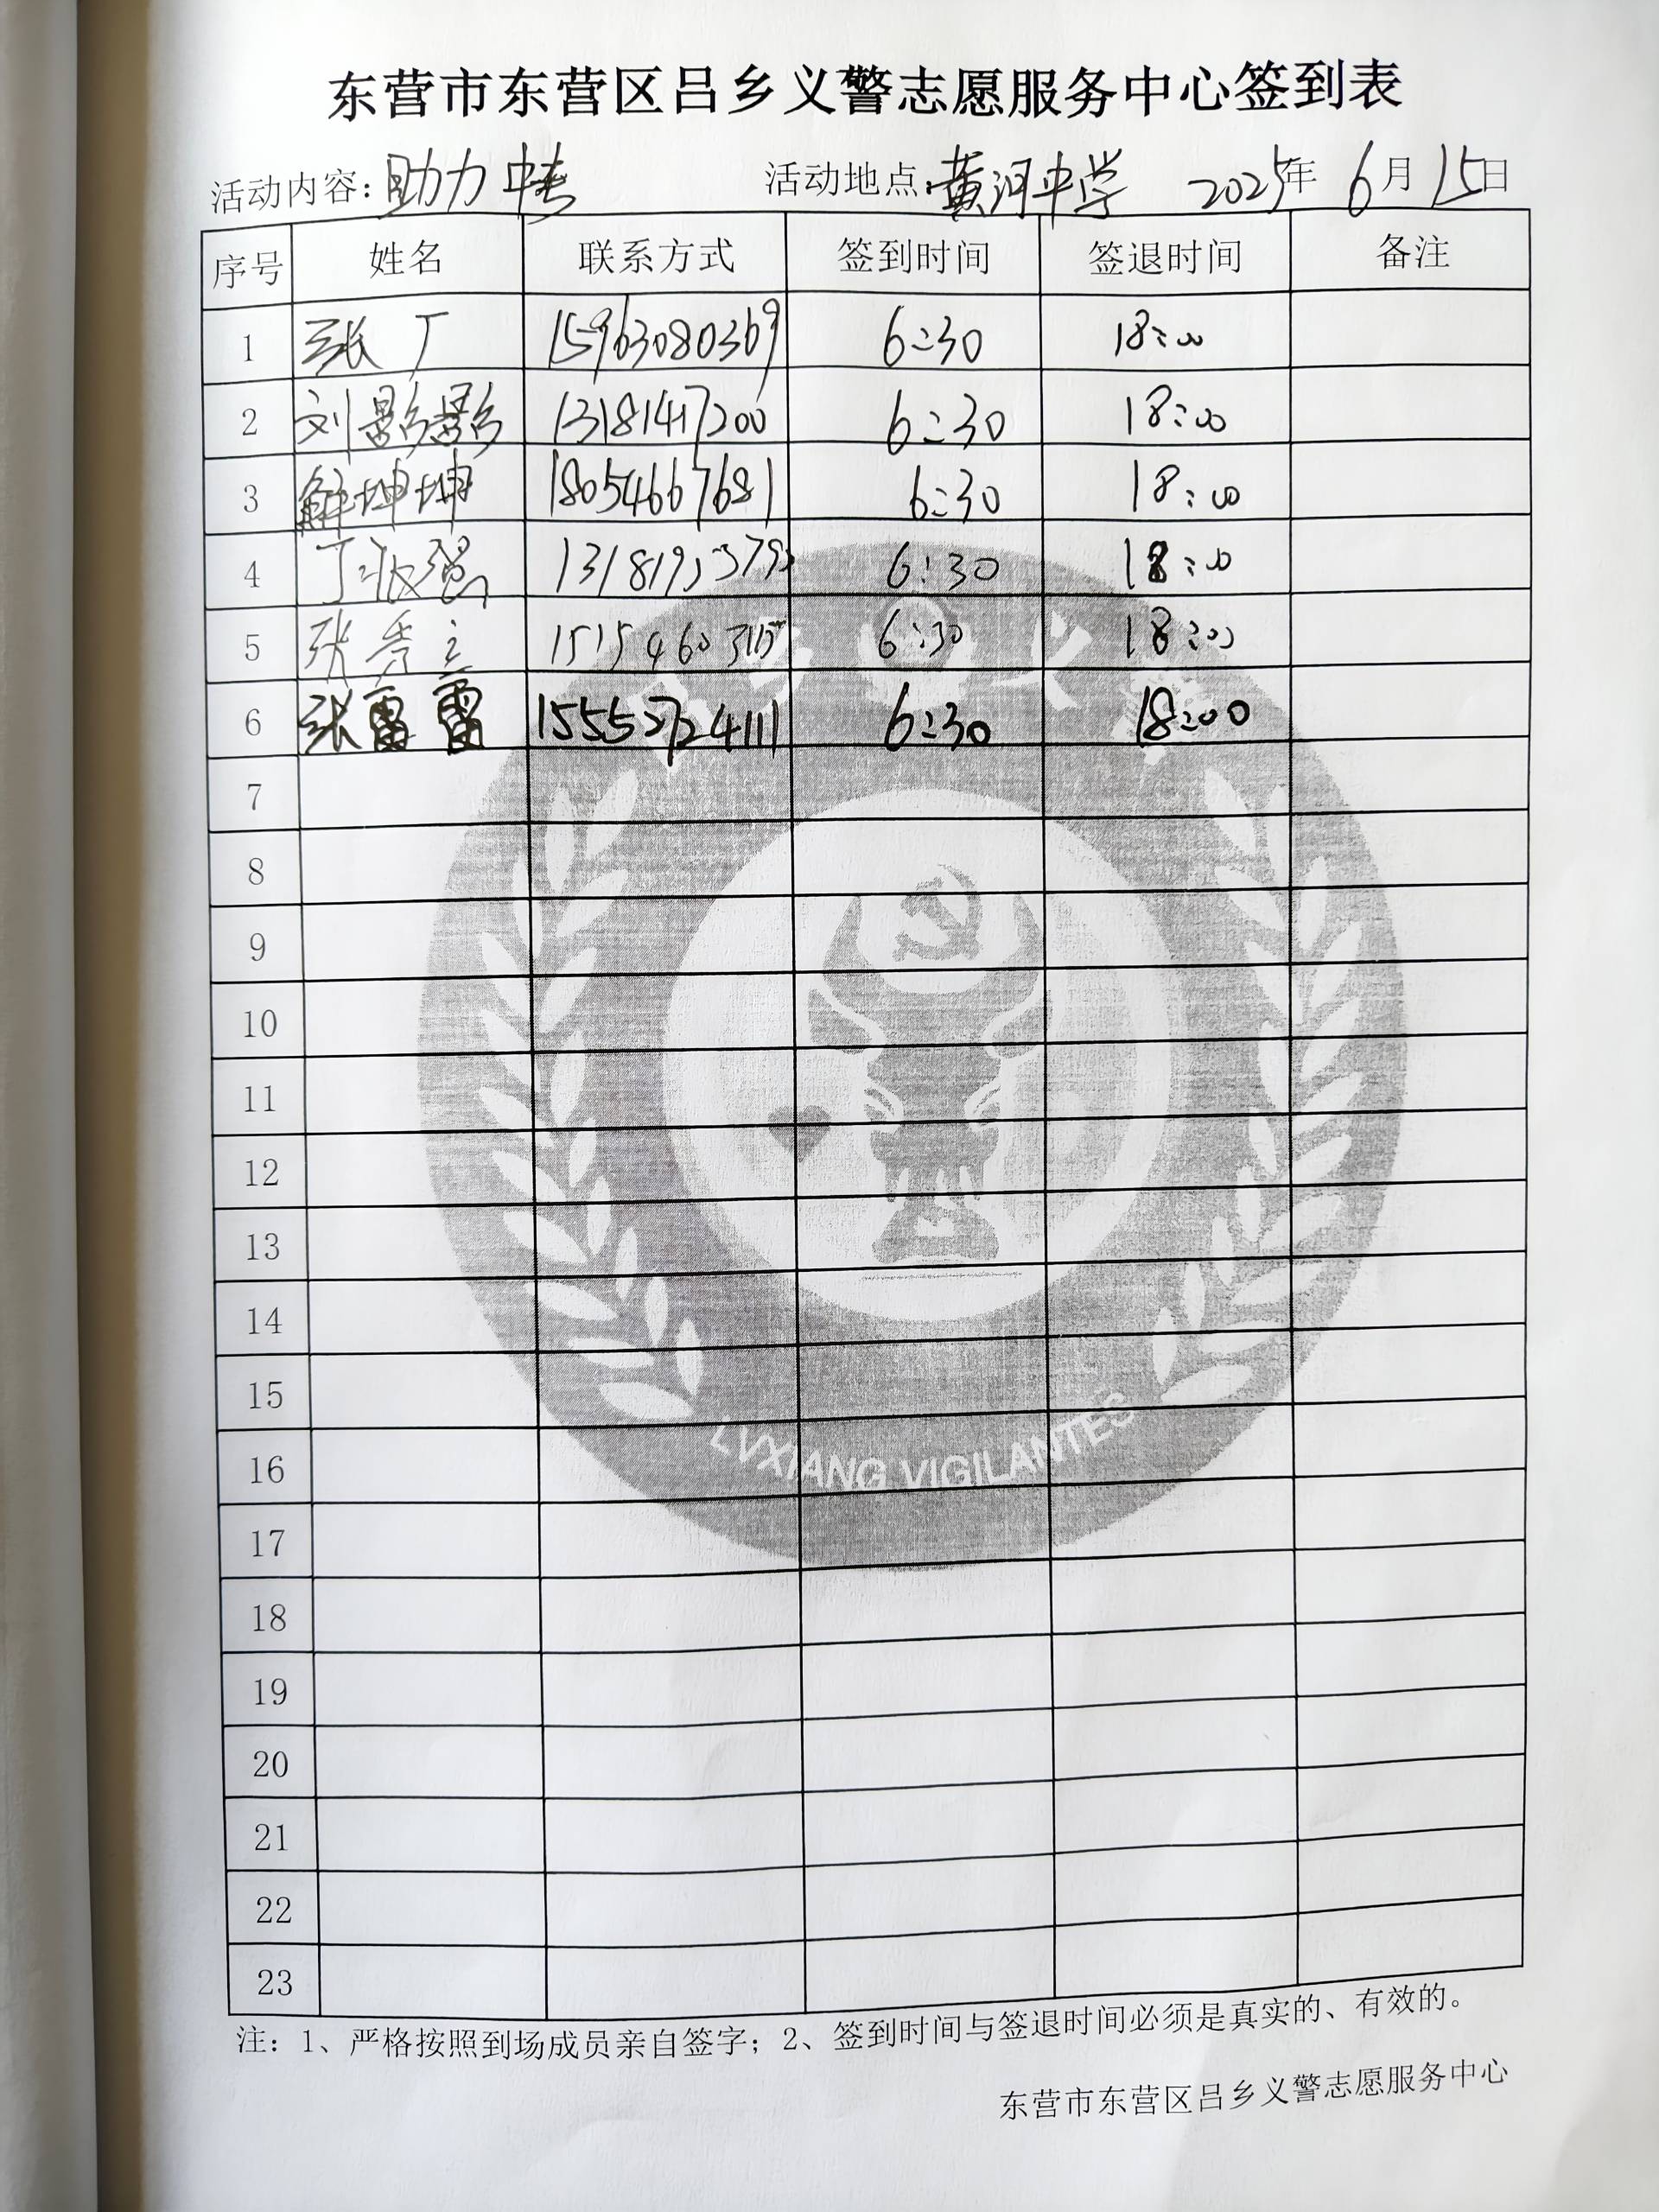 东营市东营区吕乡义警志愿服务中心签到表
活动内容：助力中考 活动地点：黄河中学 2025年 6月15日
序号 姓名 联系方式 签到时间 签退时间 备注
1 张丁 15963080369 6:30 18:00
2 刘影影 13181417200 6:30 18:00
3 解坤坤 18054667681 6:30 18:00
4 6:30 18:00
5 张秀立 6:30 18:00
6 张雷雷 15552724111 6:30 18:00
7
8
9
10
11
12
13
14
15
16
17
18
19
20
21
22
23
LVXIANG VIGILANTES
注：1、严格按照到场成员亲自签字；2、签到时间与签退时间必须是真实的、有效的。
东营市东营区吕乡义警志愿服务中心